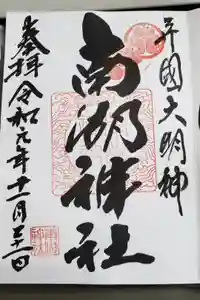 守國大明神
南湖神社
奉拝 令和元年十一月二十一日